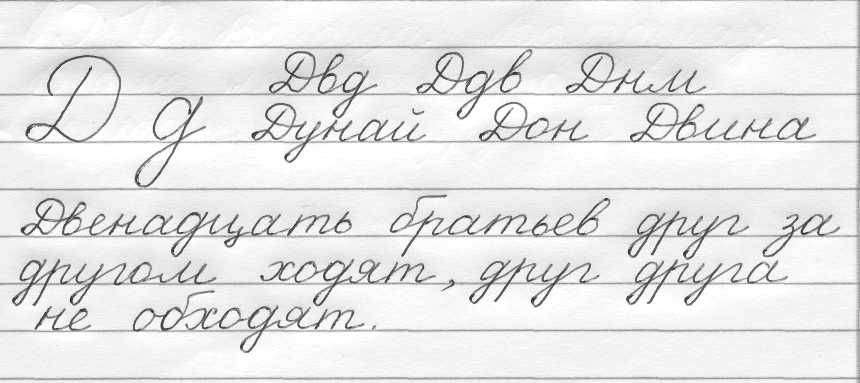 Двд Ддв Днм
Д д Дунай Дон Двина
Двенадцать братьев друг за
другом ходят, друг друга
не обходят.